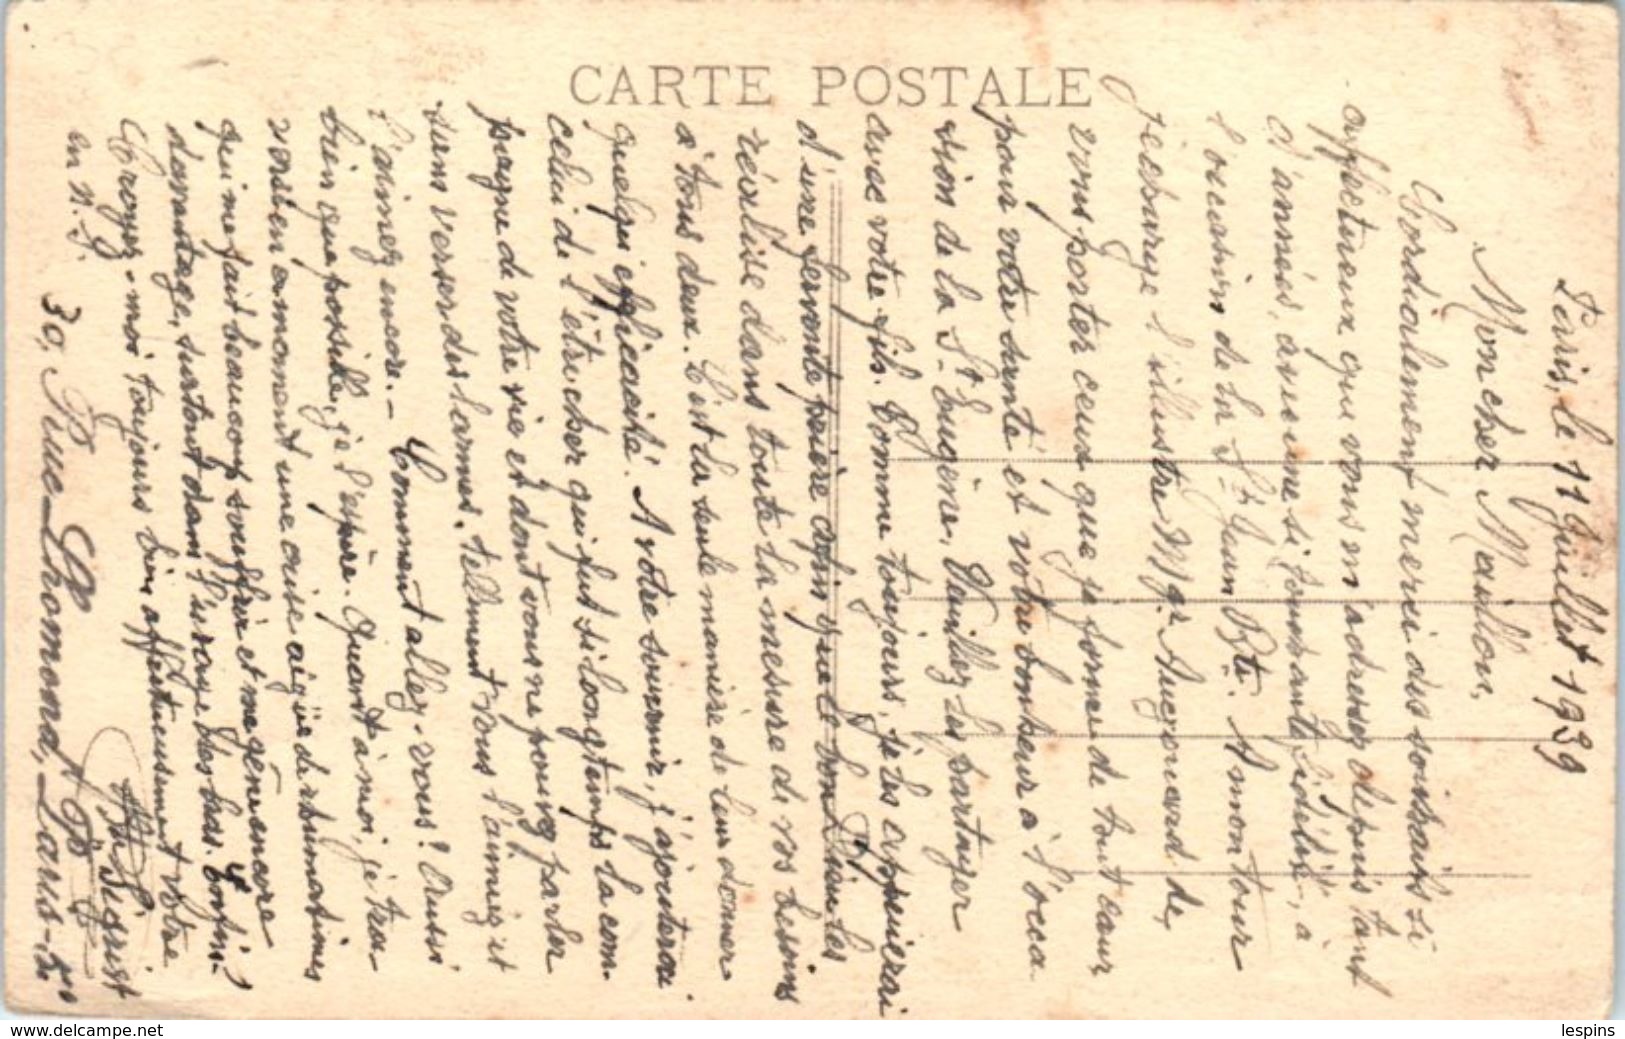 CARTE POSTALE
Paris, le 11 Juillet 1939
Mon cher Maillou,
Cordialement merci des souhaits si
affectueux que vous m'adressez depuis tant
d'années, avec une si touchante fidélité, à
l'occasion de la St Jean Bte. A mon tour
je charge l'illustre Mgr Augouard de
vous porter ceux que je forme de tout cœur
pour votre santé et votre bonheur à l'occa
sion de la St Eugène. Veuillez les partager
avec votre fils. Comme toujours, je les appuierai
d'une fervente prière afin que le bon Dieu les
réalise dans toute la mesure de vos besoins
à tous deux. C'est la seule manière de leur donner
quelqu'efficacité. A votre souvenir, j'ajouterai
celui de l'être cher qui fut si longtemps la com-
pagne de votre vie et dont vous ne pouvez parler
sans verser des larmes, tellement vous l'aimiez et
l'aimez encore. - Comment allez-vous? Aussi
bien que possible, je l'espère. Quant à moi, je tra-
verse en ce moment une crise aiguë de rhumatismes
qui me fait beaucoup souffrir et me gêne encore
davantage, surtout dans l'usage des bras. Enfin!
Croyez-moi toujours bien affectueusement vôtre
en N. S.
JB Sigrist
30, Rue Lhomond, Paris-5e
www.delcampe.net
lespins